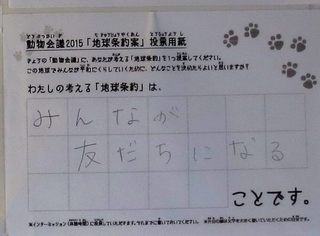 動物会議2015「地球条約案」投票用紙
きょうの「動物会議」に、あなたが考える「地球条約」を1つ提案してください。
この地球でみんなが平和にくらしていくために、どんなことを決めたらよいと思いますか?
わたしの考える「地球条約」は、
みんなが
友だちになる
ことです。